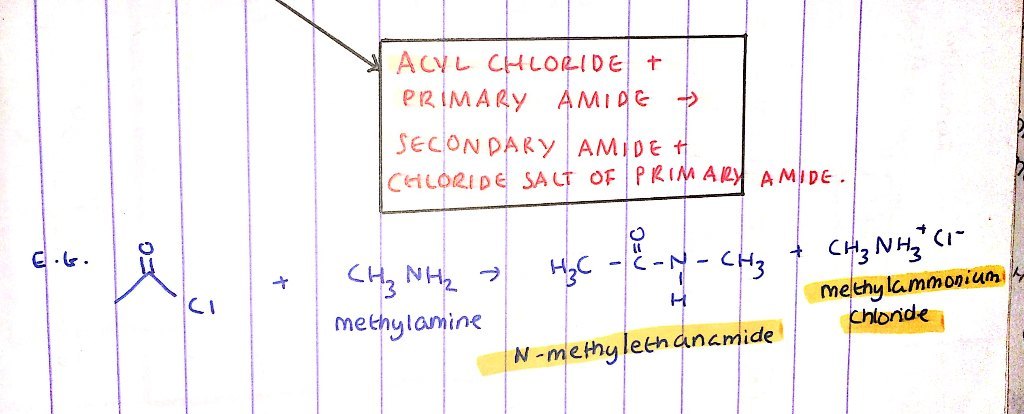 ACYL CHLORIDE +
PRIMARY AMIDE →
SECONDARY AMIDE +
CHLORIDE SALT OF PRIMARY AMIDE.
E.G. O Cl + CH₃NH₂ → H₃C - C - N - CH₃ + CH₃NH₃⁺Cl⁻
O
H
methylamine
N-methylethanamide
methylammonium
chloride